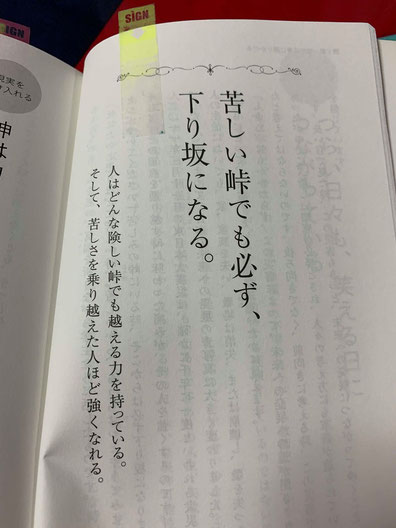 SIGN
IGN
苦しい峠でも必ず、
下り坂になる。
人はどんな険しい峠でも越える力を持っている。
そして、苦しさを乗り越えた人ほど強くなれる。